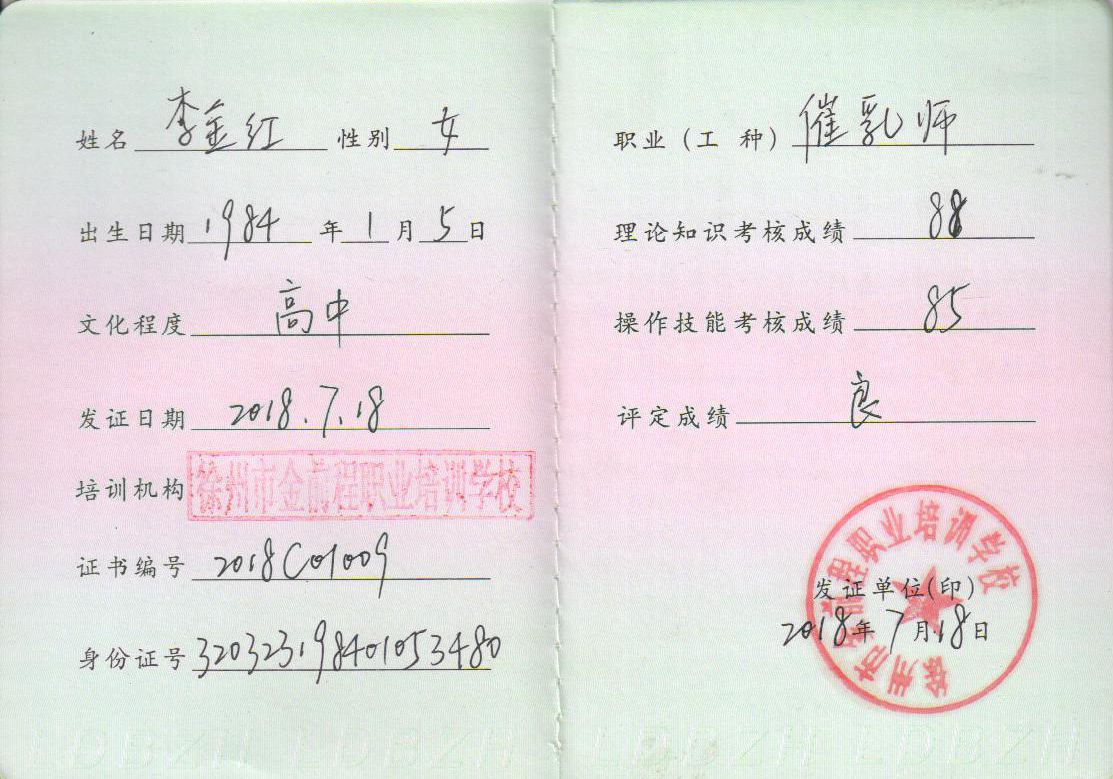 姓名 李金红 性别 女
出生日期 1984 年 1 月 5 日
文化程度 高中
发证日期 2018.7.18
培训机构 徐州市金前程职业培训学校
证书编号 2018C01009
身份证号 320323198401053480
职业（工 种） 催乳师
理论知识考核成绩 88
操作技能考核成绩 85
评定成绩 良
徐州市金前程职业培训学校
发证单位(印)
2018年7月18日
LDBZH LDBZH LDBZH LDBZH